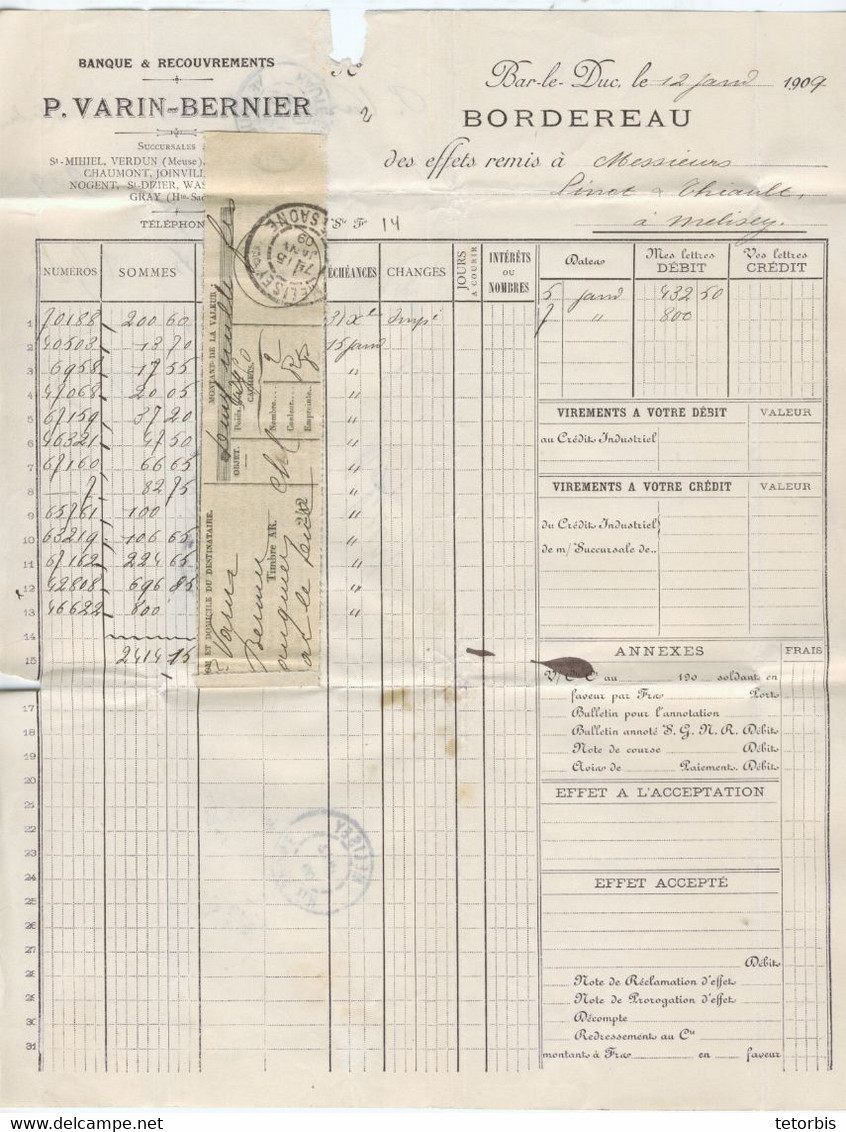 BANQUE & RECOUVREMENTS
P. VARIN-BERNIER
SUCCURSALES
St-MIHIEL, VERDUN (Meuse),
CHAUMONT, JOINVILL
NOGENT, St-DIZIER, WAS
GRAY (Hte-Sa
TÉLÉPHON
Bar-le-Duc, le 12 janv 1909
BORDEREAU
des effets remis à Messieurs
à Melisey.
14
NUMÉROS SOMMES ÉCHÉANCES CHANGES JOURS A COURIR INTÉRÊTS OU NOMBRES
Dates Mes lettres DÉBIT Vos lettres CRÉDIT
5 janv 432 50
7 " 800
1 70188 200 60 31 Xe
2 40503 13 70 15 janv
3 6958 17 55 "
4 47068 20 05 "
5 67159 37 20 "
6 46321 47 50 "
7 67160 66 65 "
8 — 7 82 75 "
9 65761 100 "
10 63219 106 65 "
11 67162 224 65 "
12 42808 696 85 "
13 46622 800 "
14
15 2414 15
17
18
19
20
21
22
23
24
25
26
27
28
29
30
31
MONTANT DE LA VALEUR
OBJET.
Poids.
CACHETS.
Nombre
Couleur
Empreinte
NOM ET DOMICILE DU DESTINATAIRE.
Timbre AR.
242
Varin
Bernier
banquier
Bar le Duc
MELISEY
15 JANV 09
VIREMENTS A VOTRE DÉBIT VALEUR
au Crédit Industriel
VIREMENTS A VOTRE CRÉDIT VALEUR
du Crédit Industriel
de m/ Succursale de..
ANNEXES FRAIS
V/ Cte Ct au 190 soldant en
faveur par Frs Ports
Bulletin pour l'annotation
Bulletin annoté S. G. N. R. Débit
Note de course Débit
Avis de Paiement. Débit
EFFET A L'ACCEPTATION
EFFET ACCEPTÉ
Débit
Note de Réclamation d'effet
Note de Prorogation d'effet
Décompte
Redressement au Cte
montant à Frs en faveur
MELISEY
delcampe.net
tetorbis